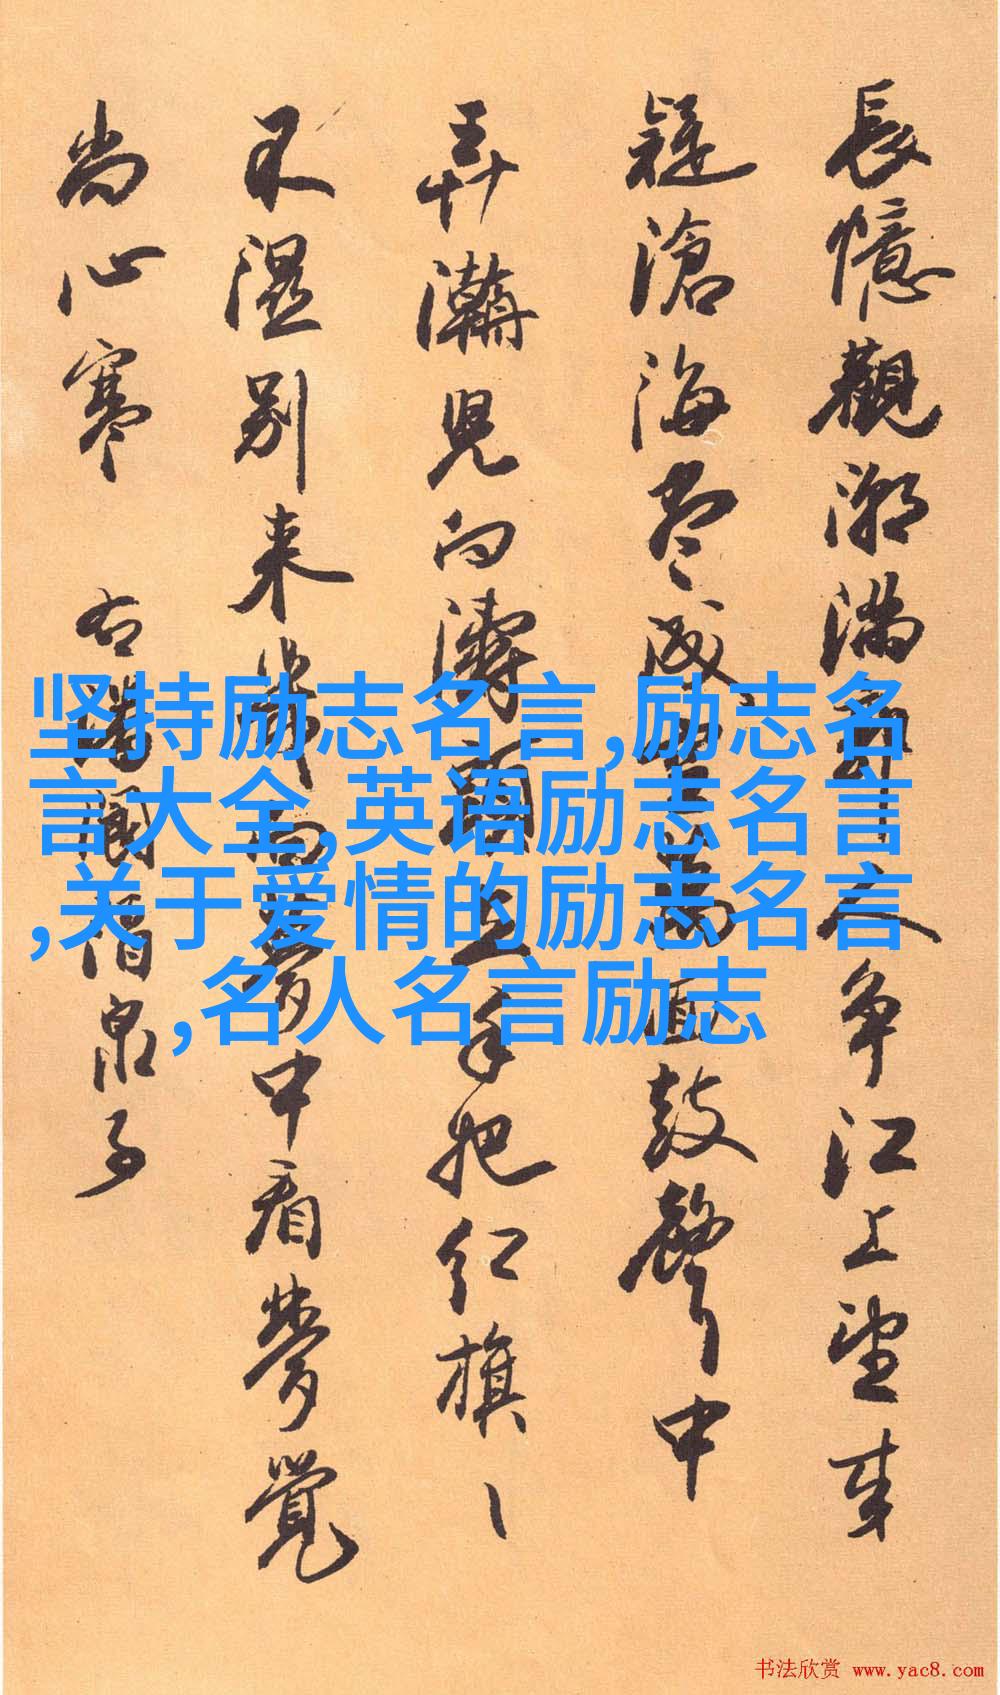 長憶觀潮滿郭人争江上望来
疑滄海盡成空萬面鼓聲中
弄濤兒向濤頭立手把红旗、
不濕别来㡬向夢中看夢覺
尚心寒 右潘閬酒泉子
坚持励志名言,励志名
言大全,英语励志名言
,关于爱情的励志名言
,名人名言励志
书法欣赏 www.yac8.com